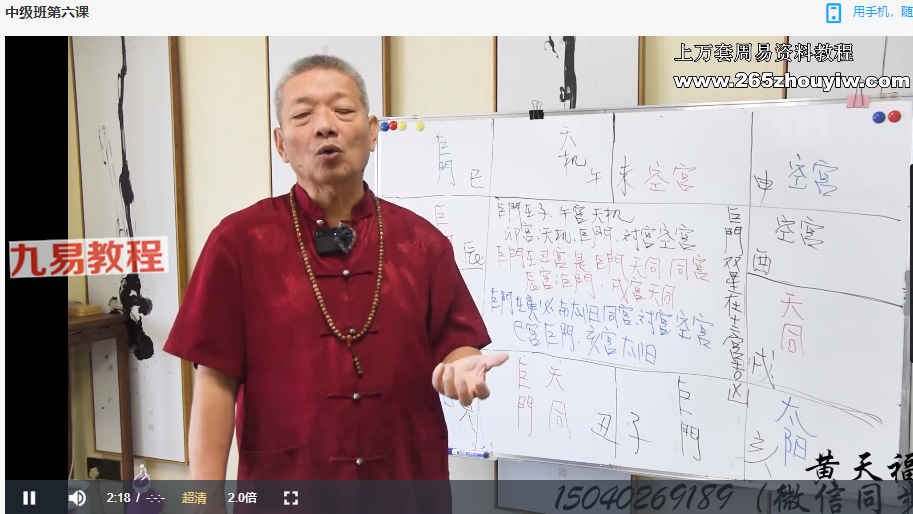 中级班第六课
用手机，随
上万套周易资料教程
www.265zhouyiw.com
九易教程
巨門 巳
天机 午
未 空宫
申 空宫
巨 辰
空宫 酉
巨門在子.午宫天机
卯宫.天机.巨門.对宫空宫
巨門在丑宫是巨門天同同宫
辰宫.巨門.戌宫天同
巨門在寅必和太阳同宫.对宫空宫
巳宫巨門.亥宫太阳
巨門双星在十二宫吉凶
天同 戌
巨門 天同 丑
子 巨門
太阳 亥
黄天福
15040269189（微信同
2:18 / -:-
超清
2.0倍